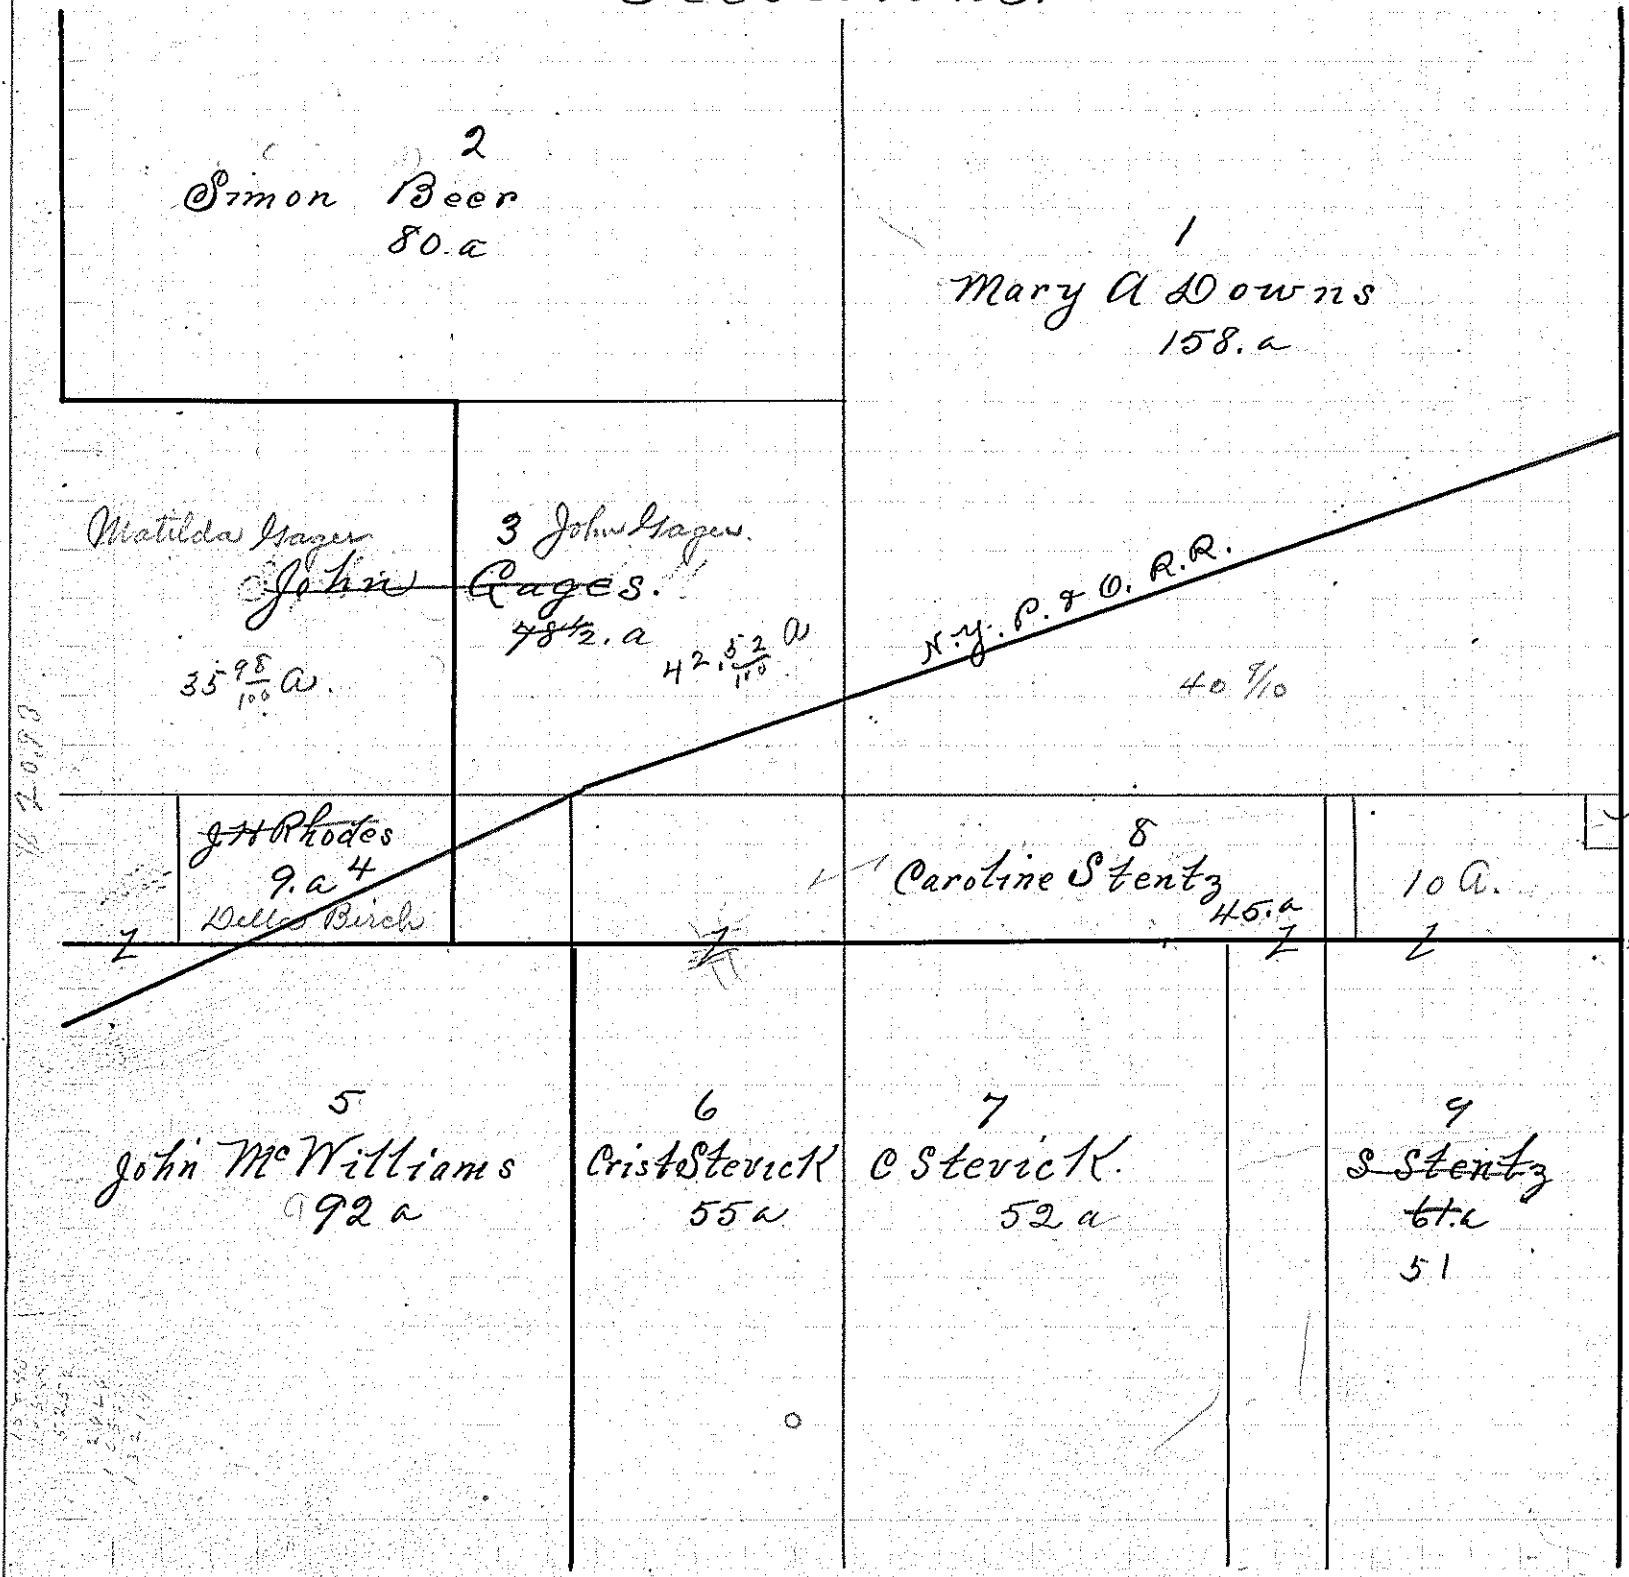 2
Simon Beer
80.a
1
Mary A Downs
158.a
Matilda Gager
3 John Gager.
John Gages.
78½.a
35 98/100 A.
42.52/100 A
N.Y. P. & O. R.R.
40 9/10
J H Rhodes
9.a 4
Birch
8
Caroline Stentz
45.a
10 A.
Z Z Z Z
5
John McWilliams
92 a
6
Crist Stevick
55 a
7
C Stevick.
52 a
9
S Stentz
61.a
51